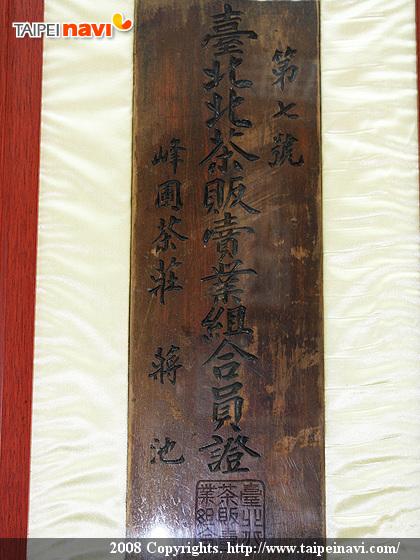 TAIPEI navi
第七號
臺北北茶販賣業組合員證
峰圃茶莊 蔣池
臺北北
茶販
業組
2008 Copyrights. http://www.taipeinavi.com/